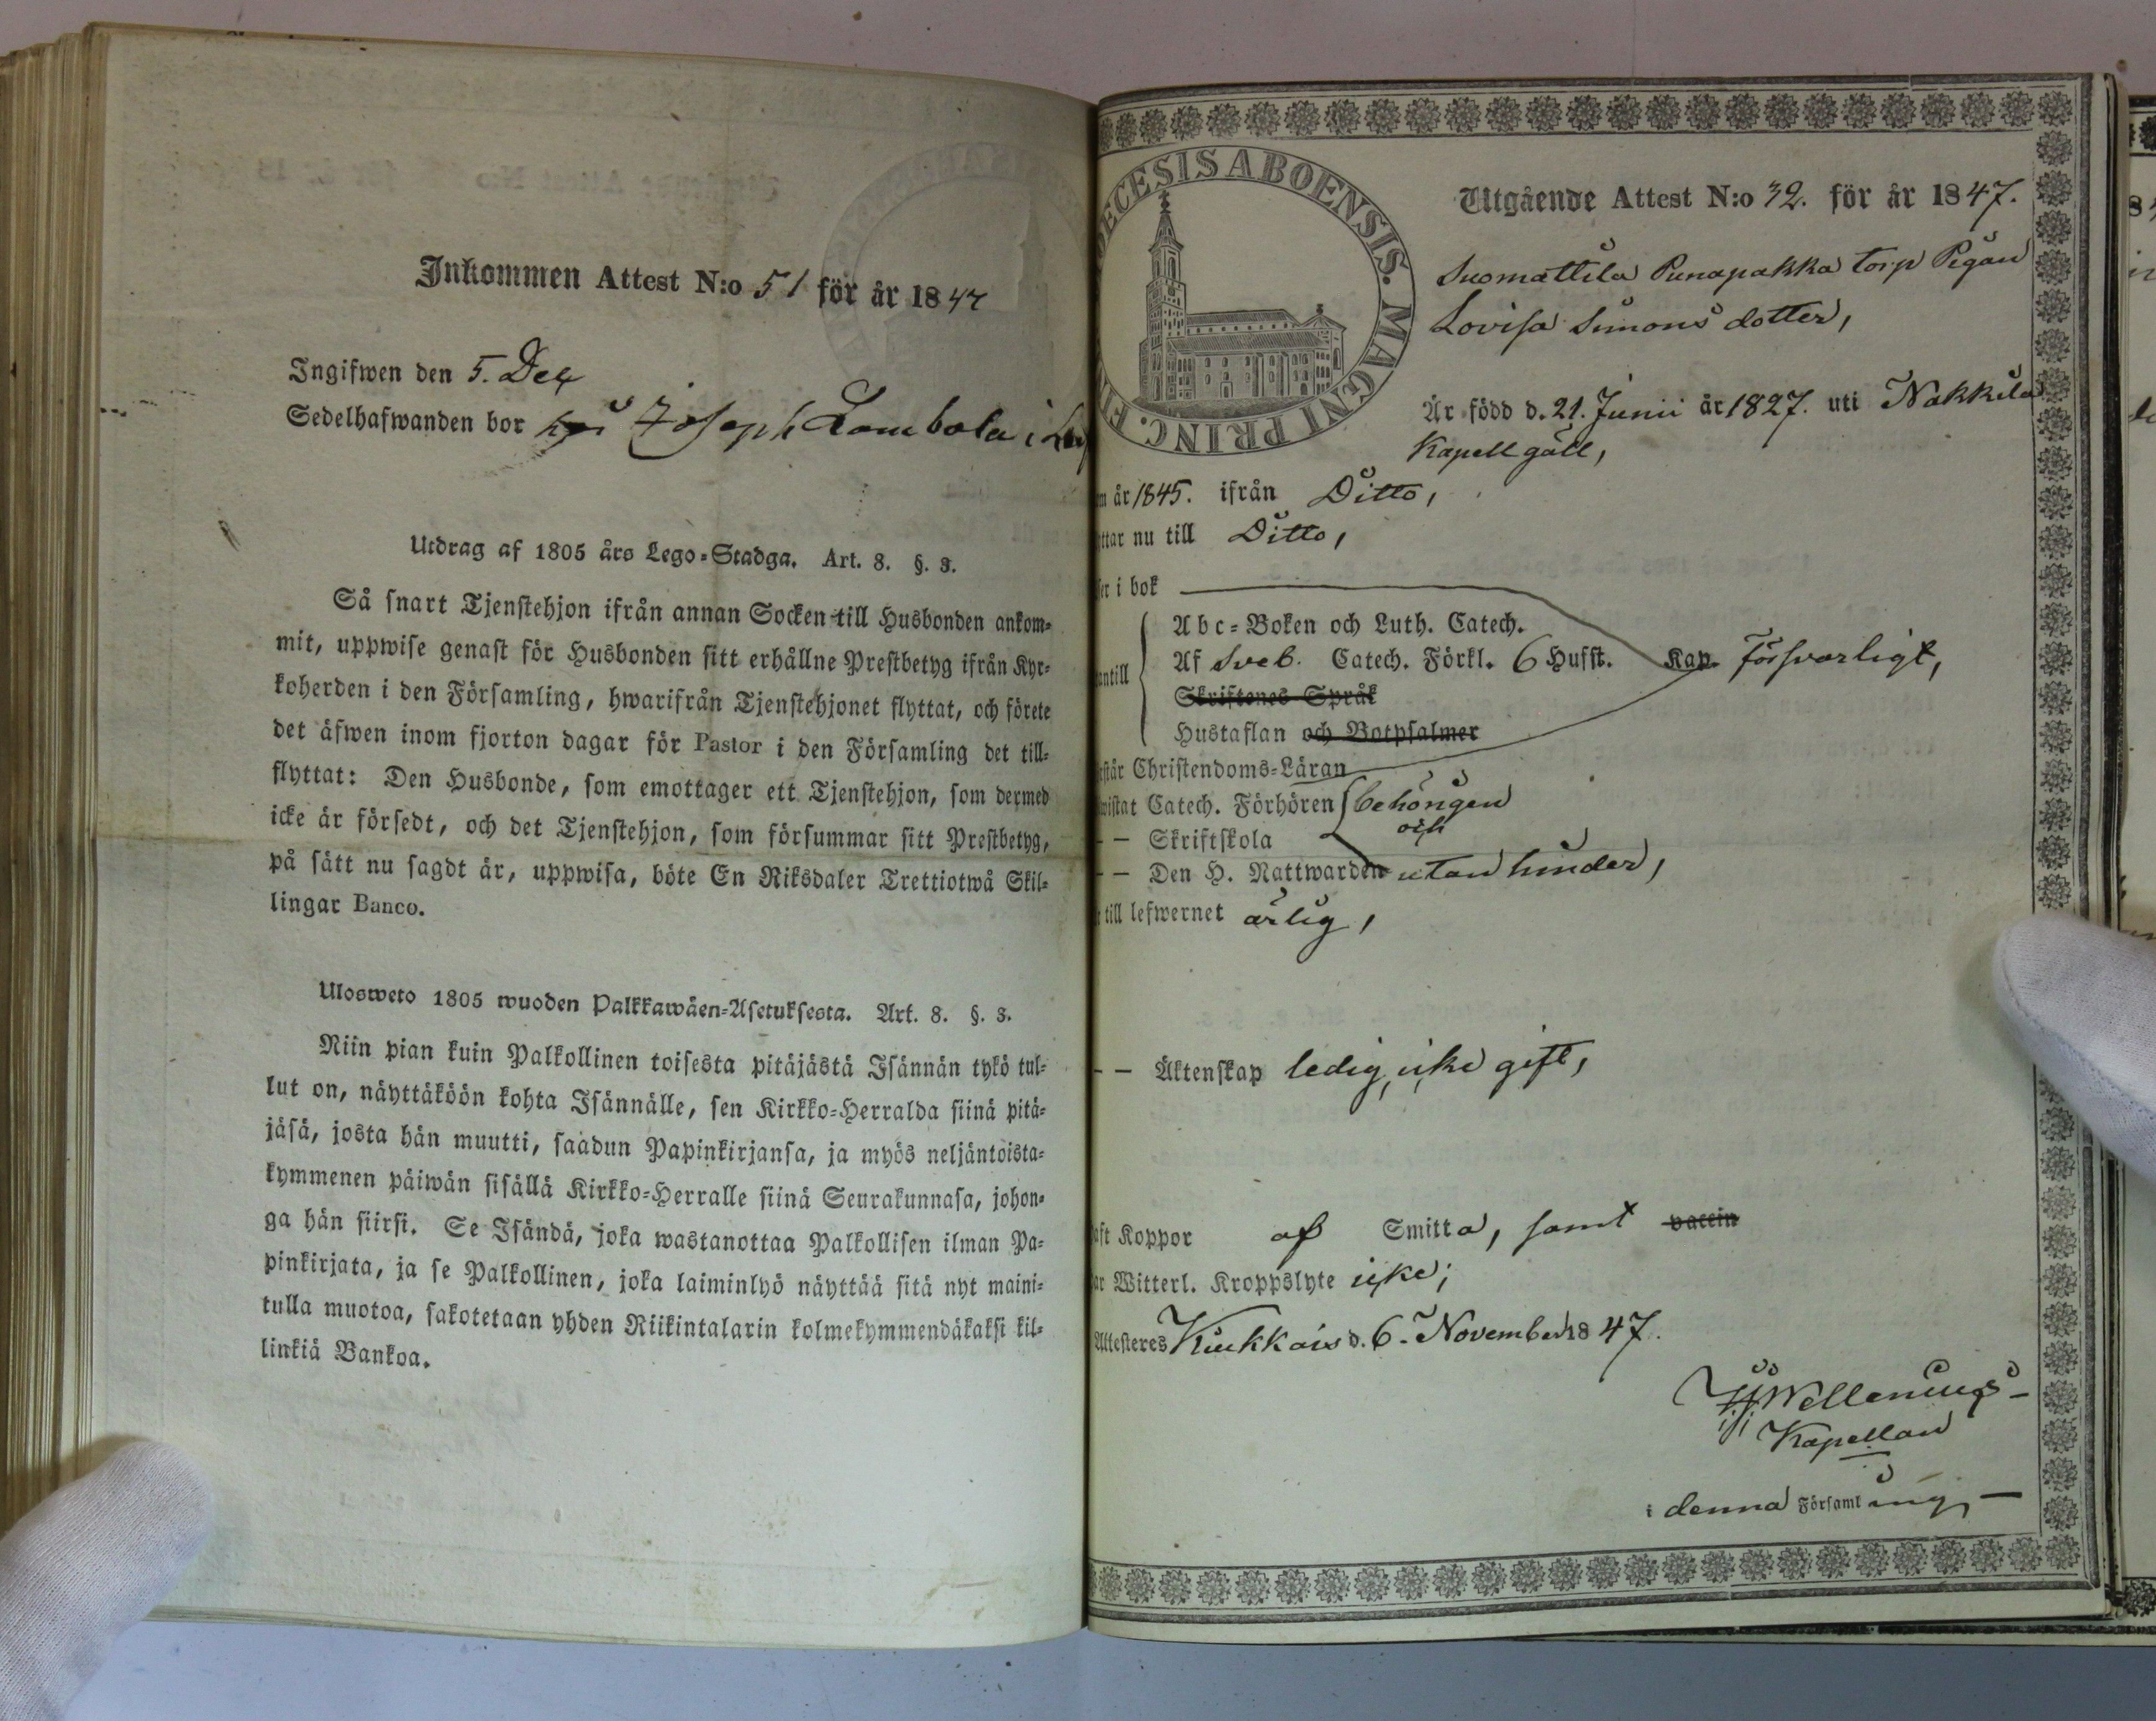 Inkommen Attest N:o 51 för år 1847
Ingifwen den 5. Dec
Sedelhafwanden bor hos Joseph i
Utdrag af 1805 års Lego-Stadga. Art. 8. §. 3.
Så snart Tjenstehjon ifrån annan Socken till Husbonden ankom-
mit, uppwise genast för Husbonden sitt erhållne Prestbetyg ifrån Kyr-
koherden i den Församling, hwarifrån Tjenstehjonet flyttat, och förete
det äfwen inom fjorton dagar för Pastor i den Församling det till-
flyttat: Den Husbonde, som emottager ett Tjenstehjon, som dermed
icke är försedt, och det Tjenstehjon, som försummar sitt Prestbetyg,
på sätt nu sagdt är, uppwisa, böte En Riksdaler Trettiotwå Skil-
lingar Banco.
Ulosweto 1805 wuoden Palkkawäen-Asetuksesta. Art. 8. §. 3.
Niin pian kuin Palkollinen toisesta pitäjästä Isännän tykö tul-
lut on, näyttäköön kohta Isännälle, sen Kirkko-Herralda siinä pitä-
jäsä, josta hän muutti, saadun Papinkirjansa, ja myös neljäntoista-
kymmenen päiwän sisällä Kirkko-Herralle siinä Seurakunnasa, johon-
ga hän siirsi. Se Isändä, joka wastanottaa Palkollisen ilman Pa-
pinkirjata, ja se Palkollinen, joka laiminlyö näyttää sitä nyt maini-
tulla muotoa, sakotetaan yhden Riikintalarin kolmekymmendäkaksi kil-
linkiä Bankoa.
ECESIS ABOENSIS. MAGNI PRINC. F
Utgående Attest N:o 32. för år 1847.
Suomattila Punapakka torp Pigan
Lovisa Simons dotter,
Är född d. 21. Junii år 1827. uti Nakkila
Kapell gäll,
m år 1845. ifrån Ditto,
ttar nu till Ditto,
ser i bok
Abc-Boken och Luth. Catech.
antill Af Sveb. Catech. Förkl. 6 Hufst. Kap. försvarligt,
Skriftenes Språk
Hustaflan och Botpsalmer
rstår Christendoms-Läran
wistat Catech. Förhören behörigen
— Skriftskola och
— — Den H. Nattwarden utan hinder,
till lefwernet ärlig,
— — Äktenskap ledig, icke gift,
aft Koppor af Smitta, samt vaccin
ar Witterl. Kroppslyte icke;
Attesteres Kiukkais d. 6. November 1847.
Wellenius
Kapellan
i denna Församling, —